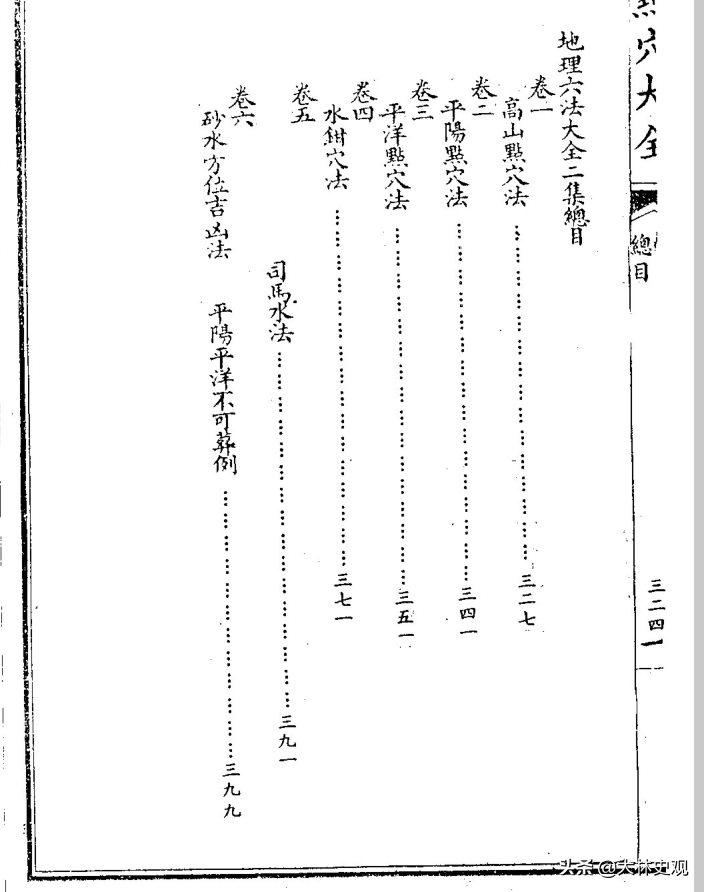 點穴大全
總目
三二四
地理六法大全二集總目
卷一
高山點穴法……三二七
卷二
平陽點穴法……三四一
卷三
平洋點穴法……三五一
卷四
水鉗穴法……三七一
卷五
司馬水法……三九一
卷六
砂水方位吉凶法 平陽平洋不可葬例……三九九
头条 @大林史观